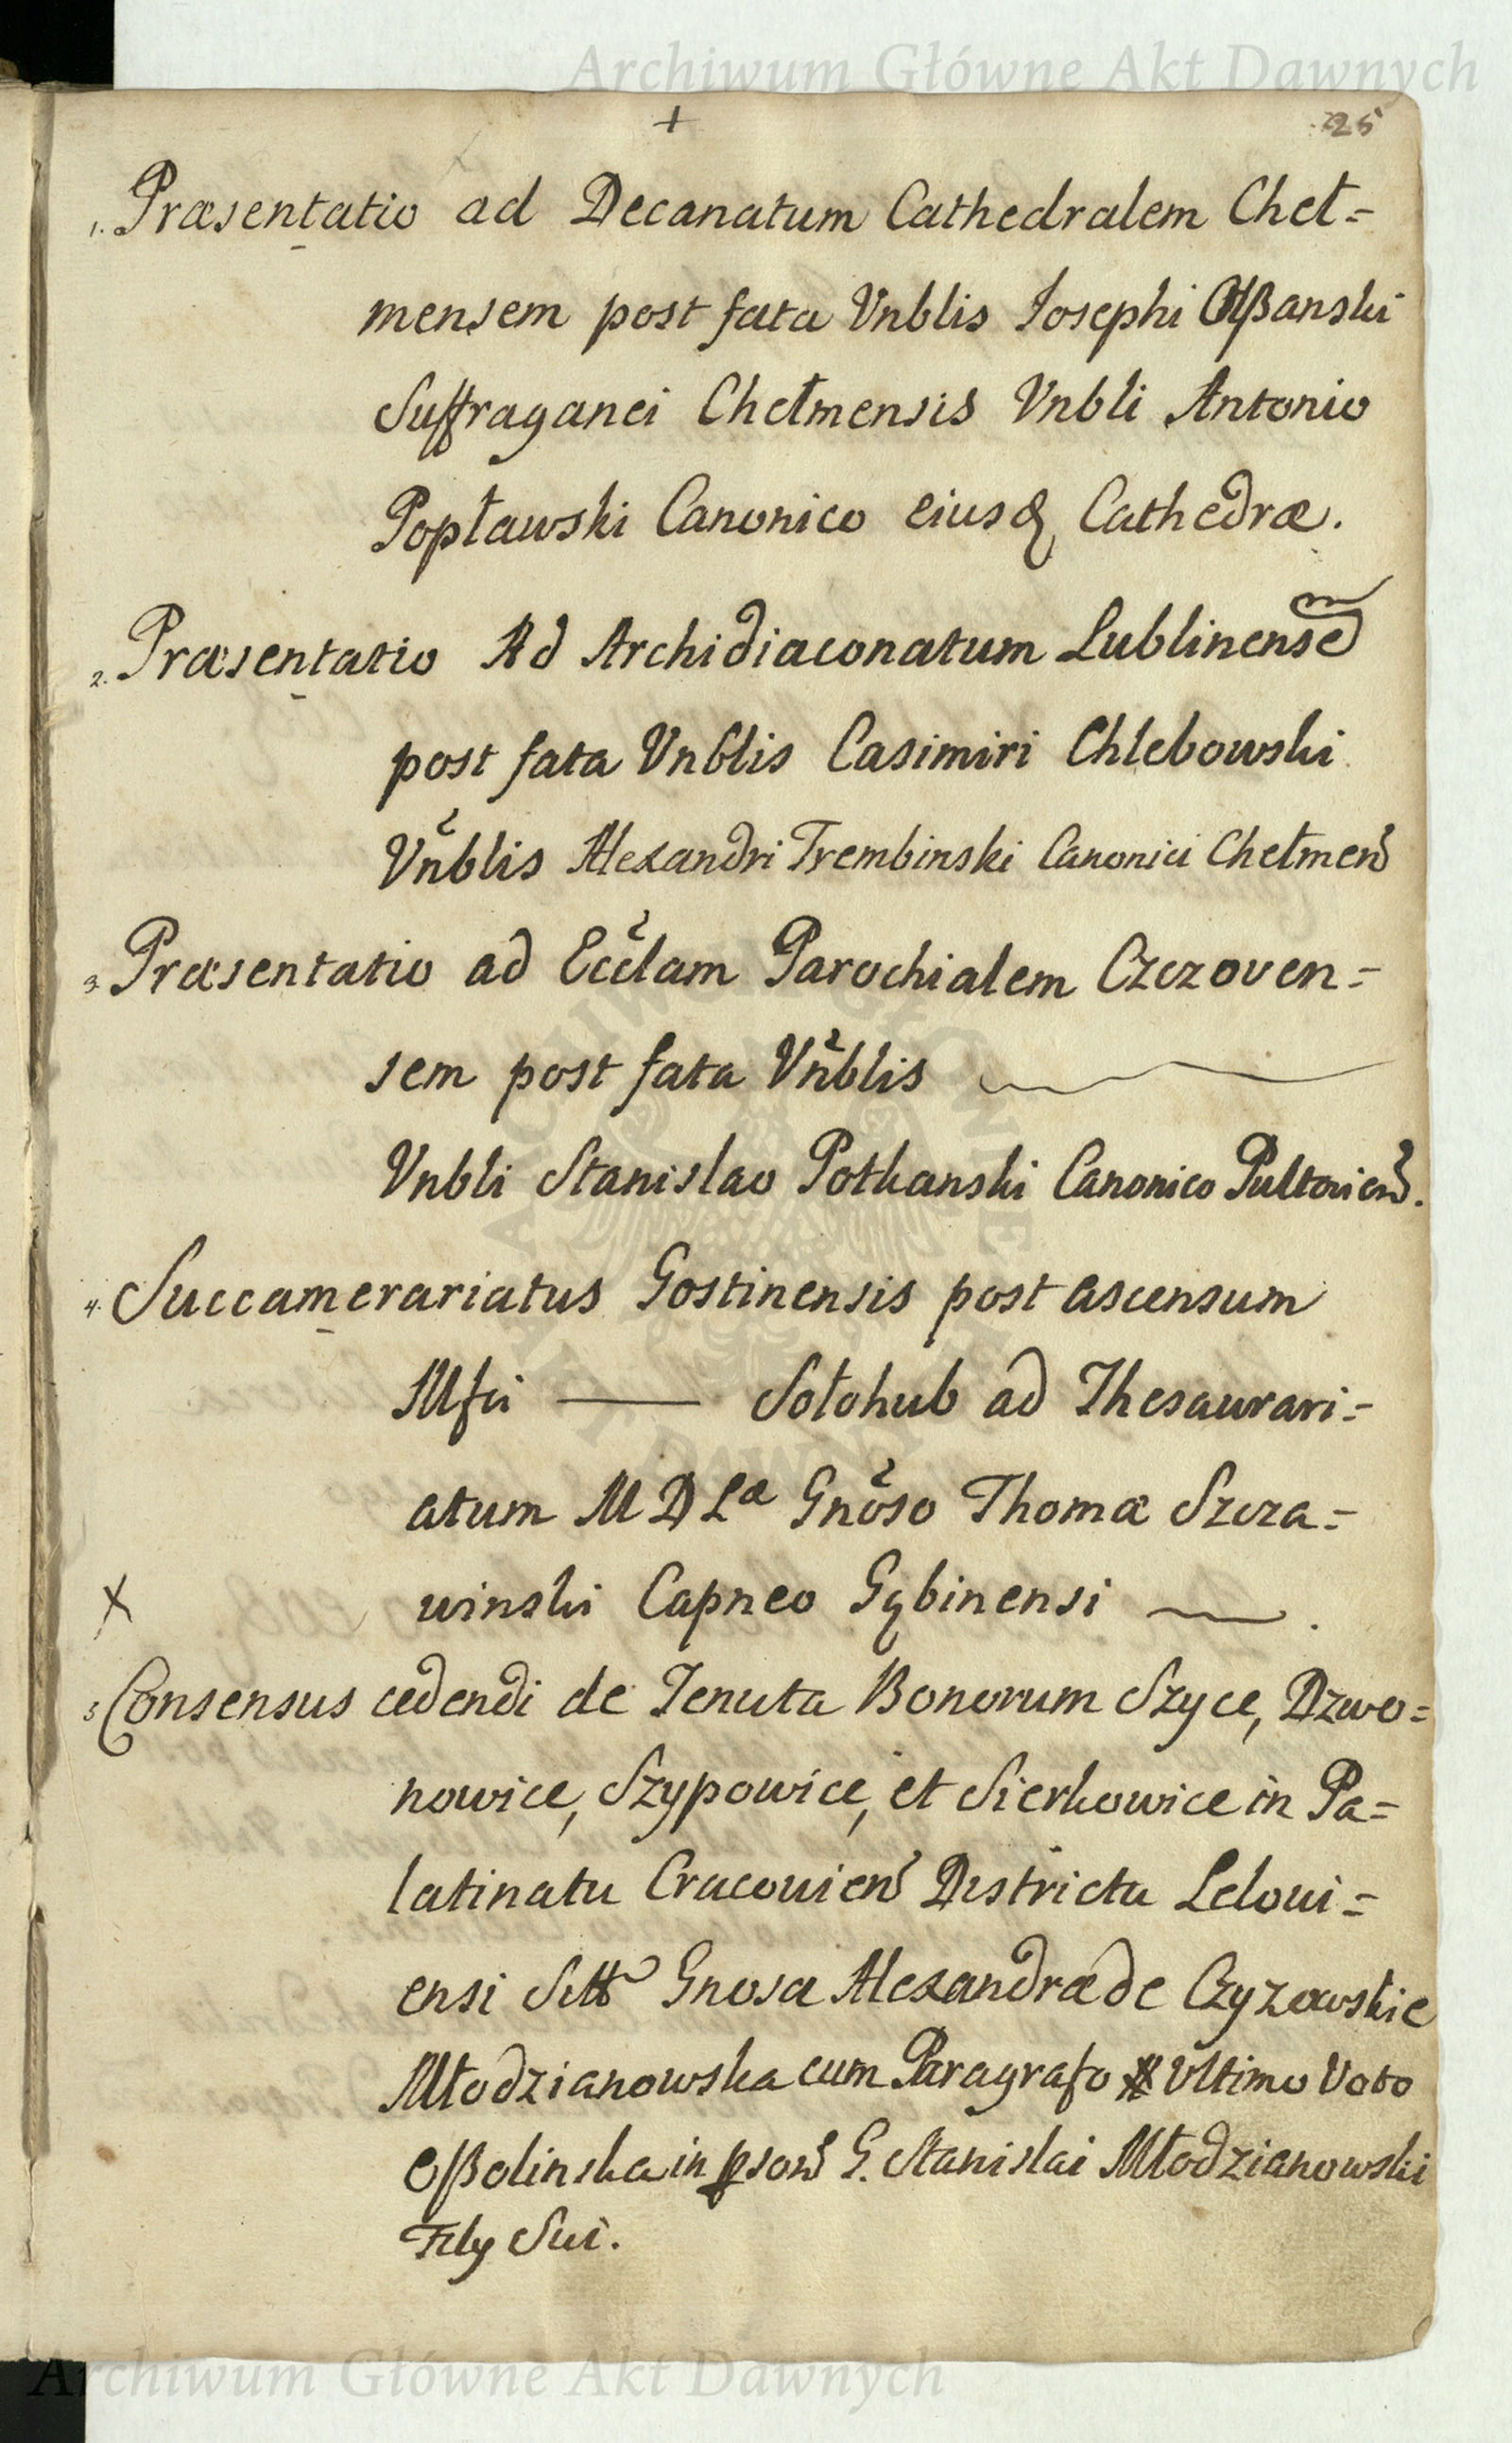 Archiwum Główne Akt Dawnych
+
25
1. Præsentatio ad Decanatum Cathedralem Cheł=
mensem post fata Vnblis Josephi Olßanski
Suffraganei Chełmensis Vnbli Antonio
Popławski Canonico eiusq Cathedræ.
2. Præsentatio Ad Archidiaconatum Lublinensem
post fata Vnblis Casimiri Chlebowski
Vnblis Alexandri Trembinski Canonici Chełmen
3. Præsentatio ad Eccłam Parochialem Czczoven=
sem post fata Vnblis
Vnbli Stanislao Potkanski Canonico
4. Succamerariatus Gostinensis post ascensum
Mfci — Sołohub ad Thesaurari=
atum M D Læ Gnoso Thomæ Szcza=
X winski Capneo Gąbinensi
5 Consensus cedendi de Tenuta Bonorum Szyce, Dzwo=
nowice, Szypowice, et Sierkowice in Pa=
latinatu Cracovien Districtu Lelovi=
ensi Gnosa Alexandræ de Czyzowskie
Młodzianowska cum Paragrafo Vltimo Voto
Oßolinska in pson G. Stanislai Młodzianowski
Fily Sui.
Archiwum Główne Akt Dawnych